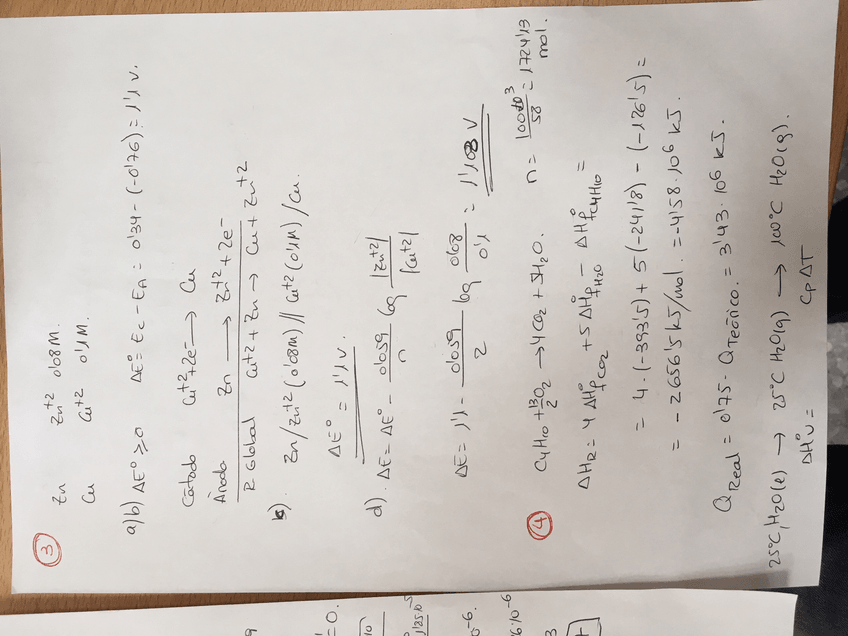 ③
Zn Zn⁺² 0'08M.
Cu Cu⁺² 0'1M.
a)b) ΔE° ≥ 0 ΔE° = Ec - EA = 0'34 - (-0'76) = 1'1 V.
Cátodo Cu⁺² + 2e⁻ → Cu
Ánodo Zn → Zn⁺² + 2e⁻
R Global Cu⁺² + Zn → Cu + Zn⁺²
b). Zn/Zn⁺² (0'08M) // Cu⁺² (0'1M) / Cu.
ΔE° = 1'1 V.
d). ΔE = ΔE° - 0'059/n log |Zn⁺²|/|Cu⁺²|
ΔE = 1'1 - 0'059/2 log 0'08/0'1 = 1'108 V
④ C₄H₁₀ + 13/2 O₂ → 4CO₂ + 5H₂O. n = 100·10³/58 = 1724'13 mol.
ΔHR = 4 ΔH°f CO₂ + 5 ΔH°f H₂O - ΔH°f C₄H₁₀ =
= 4·(-393'5) + 5(-241'8) - (-126'5) =
= -2656'5 kJ/mol. = -4'58·10⁶ kJ.
Q Real = 0'75 · Q Teórico. = 3'43·10⁶ kJ.
25°C, H₂O(l) → 25°C H₂O(g) → 100°C H₂O(g).
ΔH°v = Cp ΔT
=0.
10)
1'25·10⁻⁵
0⁻⁶.
6·10⁻⁶